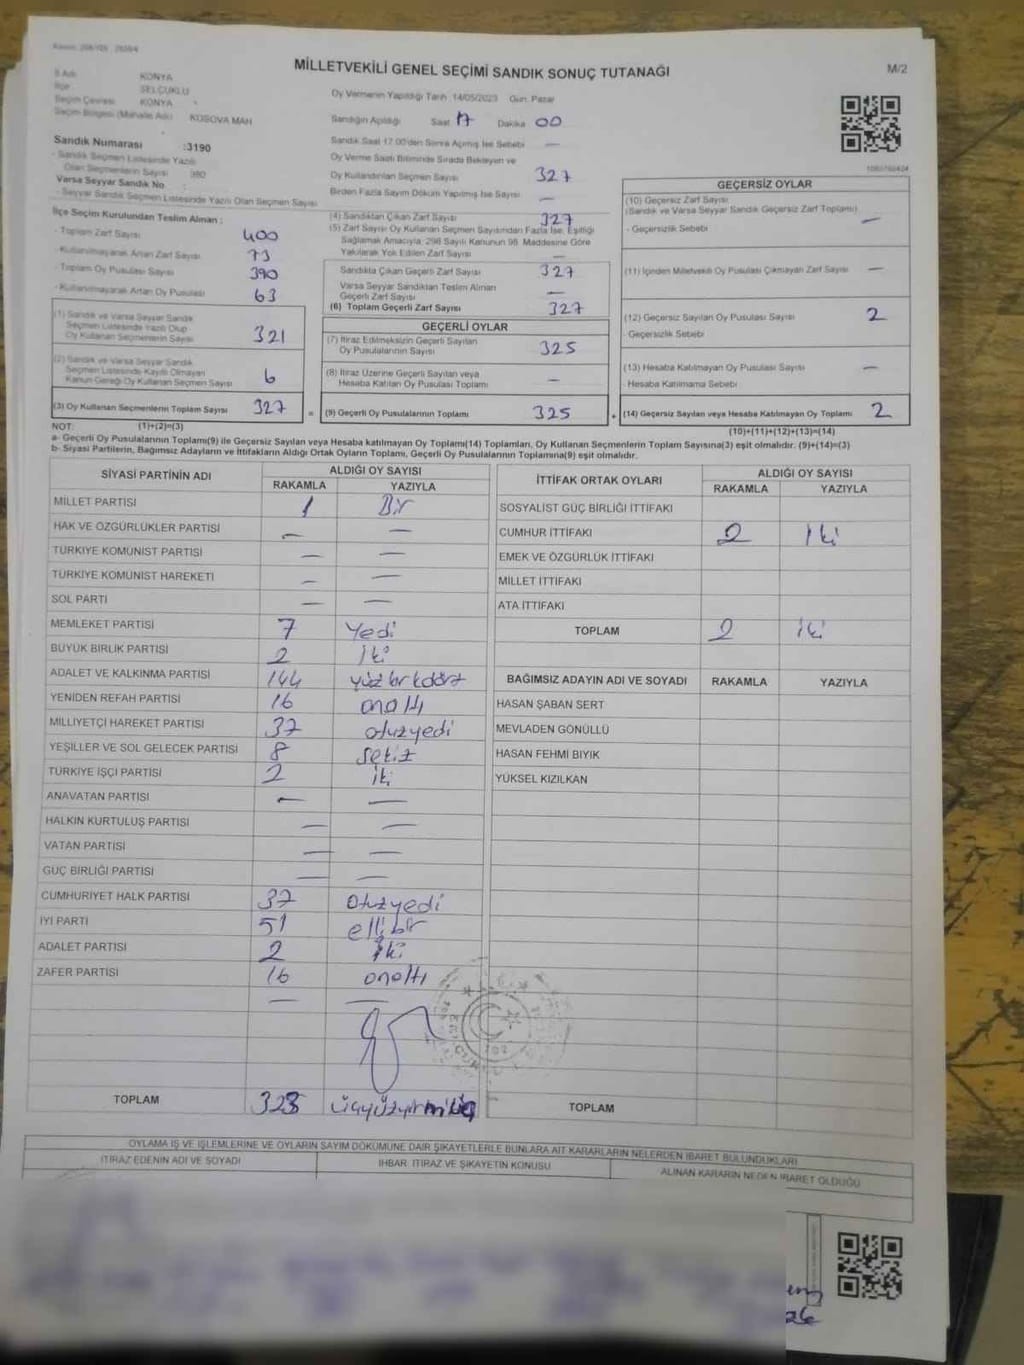 MİLLETVEKİLİ GENEL SEÇİMİ SANDIK SONUÇ TUTANAĞI
M/2
İl Adı KONYA
İlçe SELÇUKLU
Seçim Çevresi KONYA
Seçim Bölgesi (Mahalle Adı) KOSOVA MAH
Sandık Numarası :3190
- Sandık Seçmen Listesinde Yazılı
Olan Seçmenlerin Sayısı 380
Varsa Seyyar Sandık No
- Seyyar Sandık Seçmen Listesinde Yazılı Olan Seçmen Sayısı
İlçe Seçim Kurulundan Teslim Alınan :
- Toplam Zarf Sayısı 400
- Kullanılmayarak Artan Zarf Sayısı 73
- Toplam Oy Pusulası Sayısı 390
- Kullanılmayarak Artan Oy Pusulası 63
(1) Sandık ve Varsa Seyyar Sandık
Seçmen Listesinde Yazılı Olup
Oy Kullanan Seçmenlerin Sayısı 321
(2) Sandık ve Varsa Seyyar Sandık
Seçmen Listesinde Kayıtlı Olmayan
Kanun Gereği Oy Kullanan Seçmen Sayısı 6
(3) Oy Kullanan Seçmenlerin Toplam Sayısı 327
Oy Vermenin Yapıldığı Tarih 14/05/2023 Gün: Pazar
Sandığın Açıldığı Saat 17 Dakika 00
Sandık Saat 17.00'den Sonra Açılmış İse Sebebi —
Oy Verme Saati Bitiminde Sırada Bekleyen ve
Oy Kullandırılan Seçmen Sayısı 327
Birden Fazla Sayım Döküm Yapılmış İse Sayısı —
(4) Sandıktan Çıkan Zarf Sayısı 327
(5) Zarf Sayısı Oy Kullanan Seçmen Sayısından Fazla İse, Eşitliği
Sağlamak Amacıyla; 298 Sayılı Kanunun 98. Maddesine Göre
Yakılarak Yok Edilen Zarf Sayısı —
Sandıkta Çıkan Geçerli Zarf Sayısı 327
Varsa Seyyar Sandıktan Teslim Alınan
Geçerli Zarf Sayısı —
(6) Toplam Geçerli Zarf Sayısı 327
GEÇERLİ OYLAR
(7) İtiraz Edilmeksizin Geçerli Sayılan
Oy Pusulalarının Sayısı 325
(8) İtiraz Üzerine Geçerli Sayılan veya
Hesaba Katılan Oy Pusulası Toplamı —
= (9) Geçerli Oy Pusulalarının Toplamı 325
GEÇERSİZ OYLAR
(10) Geçersiz Zarf Sayısı
(Sandık ve Varsa Seyyar Sandık Geçersiz Zarf Toplamı) —
- Geçersizlik Sebebi
(11) İçinden Milletvekili Oy Pusulası Çıkmayan Zarf Sayısı —
(12) Geçersiz Sayılan Oy Pusulası Sayısı 2
- Geçersizlik Sebebi
(13) Hesaba Katılmayan Oy Pusulası Sayısı —
- Hesaba Katılmama Sebebi
+ (14) Geçersiz Sayılan veya Hesaba Katılmayan Oy Toplamı 2
NOT: (1)+(2)=(3)
(10)+(11)+(12)+(13)=(14)
a- Geçerli Oy Pusulalarının Toplamı(9) ile Geçersiz Sayılan veya Hesaba katılmayan Oy Toplamı(14) Toplamları, Oy Kullanan Seçmenlerin Toplam Sayısına(3) eşit olmalıdır. (9)+(14)=(3)
b- Siyasi Partilerin, Bağımsız Adayların ve İttifakların Aldığı Ortak Oyların Toplamı, Geçerli Oy Pusulalarının Toplamına(9) eşit olmalıdır.
SİYASİ PARTİNİN ADI ALDIĞI OY SAYISI
RAKAMLA YAZIYLA
MİLLET PARTİSİ 1 Bir
HAK VE ÖZGÜRLÜKLER PARTİSİ — —
TÜRKİYE KOMÜNİST PARTİSİ — —
TÜRKİYE KOMÜNİST HAREKETİ — —
SOL PARTİ — —
MEMLEKET PARTİSİ 7 Yedi
BÜYÜK BİRLİK PARTİSİ 2 iki
ADALET VE KALKINMA PARTİSİ 144 yüzkırkdört
YENİDEN REFAH PARTİSİ 16 onaltı
MİLLİYETÇİ HAREKET PARTİSİ 37 otuzyedi
YEŞİLLER VE SOL GELECEK PARTİSİ 8 sekiz
TÜRKİYE İŞÇİ PARTİSİ 2 iki
ANAVATAN PARTİSİ — —
HALKIN KURTULUŞ PARTİSİ — —
VATAN PARTİSİ — —
GÜÇ BİRLİĞİ PARTİSİ — —
CUMHURİYET HALK PARTİSİ 37 otuzyedi
İYİ PARTİ 51 ellibir
ADALET PARTİSİ 2 iki
ZAFER PARTİSİ 16 onaltı
— —
TOPLAM 323
İTTİFAK ORTAK OYLARI ALDIĞI OY SAYISI
RAKAMLA YAZIYLA
SOSYALİST GÜÇ BİRLİĞİ İTTİFAKI
CUMHUR İTTİFAKI 2 iki
EMEK VE ÖZGÜRLÜK İTTİFAKI
MİLLET İTTİFAKI
ATA İTTİFAKI
TOPLAM 2 iki
BAĞIMSIZ ADAYIN ADI VE SOYADI RAKAMLA YAZIYLA
HASAN ŞABAN SERT
MEVLADEN GÖNÜLLÜ
HASAN FEHMİ BIYIK
YÜKSEL KIZILKAN
TOPLAM
OYLAMA İŞ VE İŞLEMLERİNE VE OYLARIN SAYIM DÖKÜMÜNE DAİR ŞİKAYETLERLE BUNLARA AİT KARARLARIN NELERDEN İBARET BULUNDUKLARI
İTİRAZ EDENİN ADI VE SOYADI İHBAR, İTİRAZ VE ŞİKAYETİN KONUSU ALINAN KARARIN NEDEN İBARET OLDUĞU